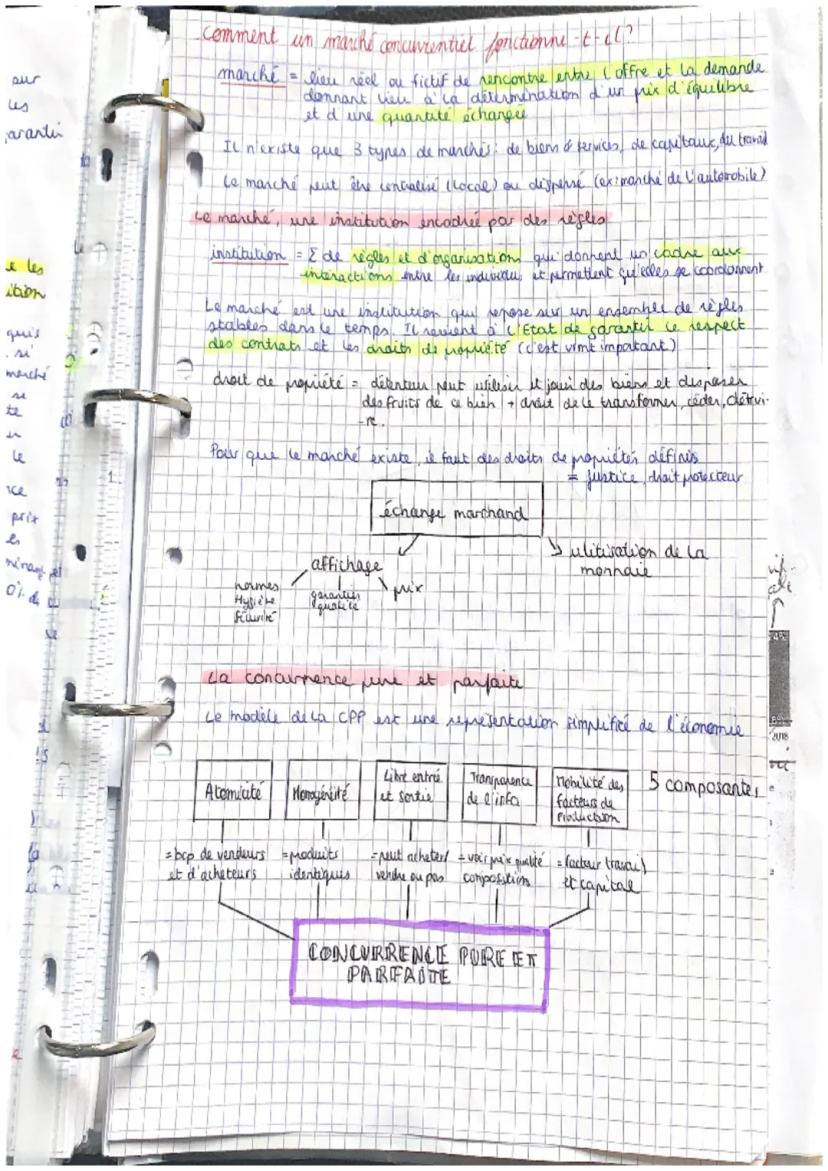 Comment un marché concurrentiel fonctionne-t-il?
marché = lieu réel ou fictif de rencontre entre l'offre et la demande
donnant lieu à la détermination d'un prix d'équilibre
et d'une quantité échangée
Il n'existe que 3 types de marchés: de biens & services, de capitaux, du travail
Le marché peut être centralisé (local) ou dispersé (ex: marché de l'automobile)
Le marché, une institution encadrée par des règles
institution = Σ de règles et d'organisations qui donnent un cadre aux
interactions entre les individus et permettent qu'elles se coordonnent
Le marché est une institution qui repose sur un ensemble de règles
stables dans le temps. Il revient à l'Etat de garantir le respect
des contrats et les droits de propriété (c'est vrmt important)
droit de propriété = détenteur peut utiliser et jouir des biens et disposer
des fruits de ce bien + droit de le transformer, céder, détrui-
-re.
Pour que le marché existe, il faut des droits de propriétés définis
= justice, droit protecteur
échange marchand
affichage
ulitisation de la
monnaie
normes
Hygiène
Sécurité
garanties
qualité
prix
La concurrence pure et parfaite
Le modèle de la CPP est une représentation simplifié de l'économie
Atomicité
Homogénéité
Libre entrée
et sortie
Transparence
de l'info
Mobilité des
facteurs de
production
5 composantes
= bcp de vendeurs
et d'acheteurs
= produits
identiques
= peut acheter/
vendre ou pas
= voir prix qualité
composition
= facteur travail
et capital
CONCURRENCE PURE ET
PARFAITE
sur
les
garantir
e les
ition
marché
se
te
le
prix
2018